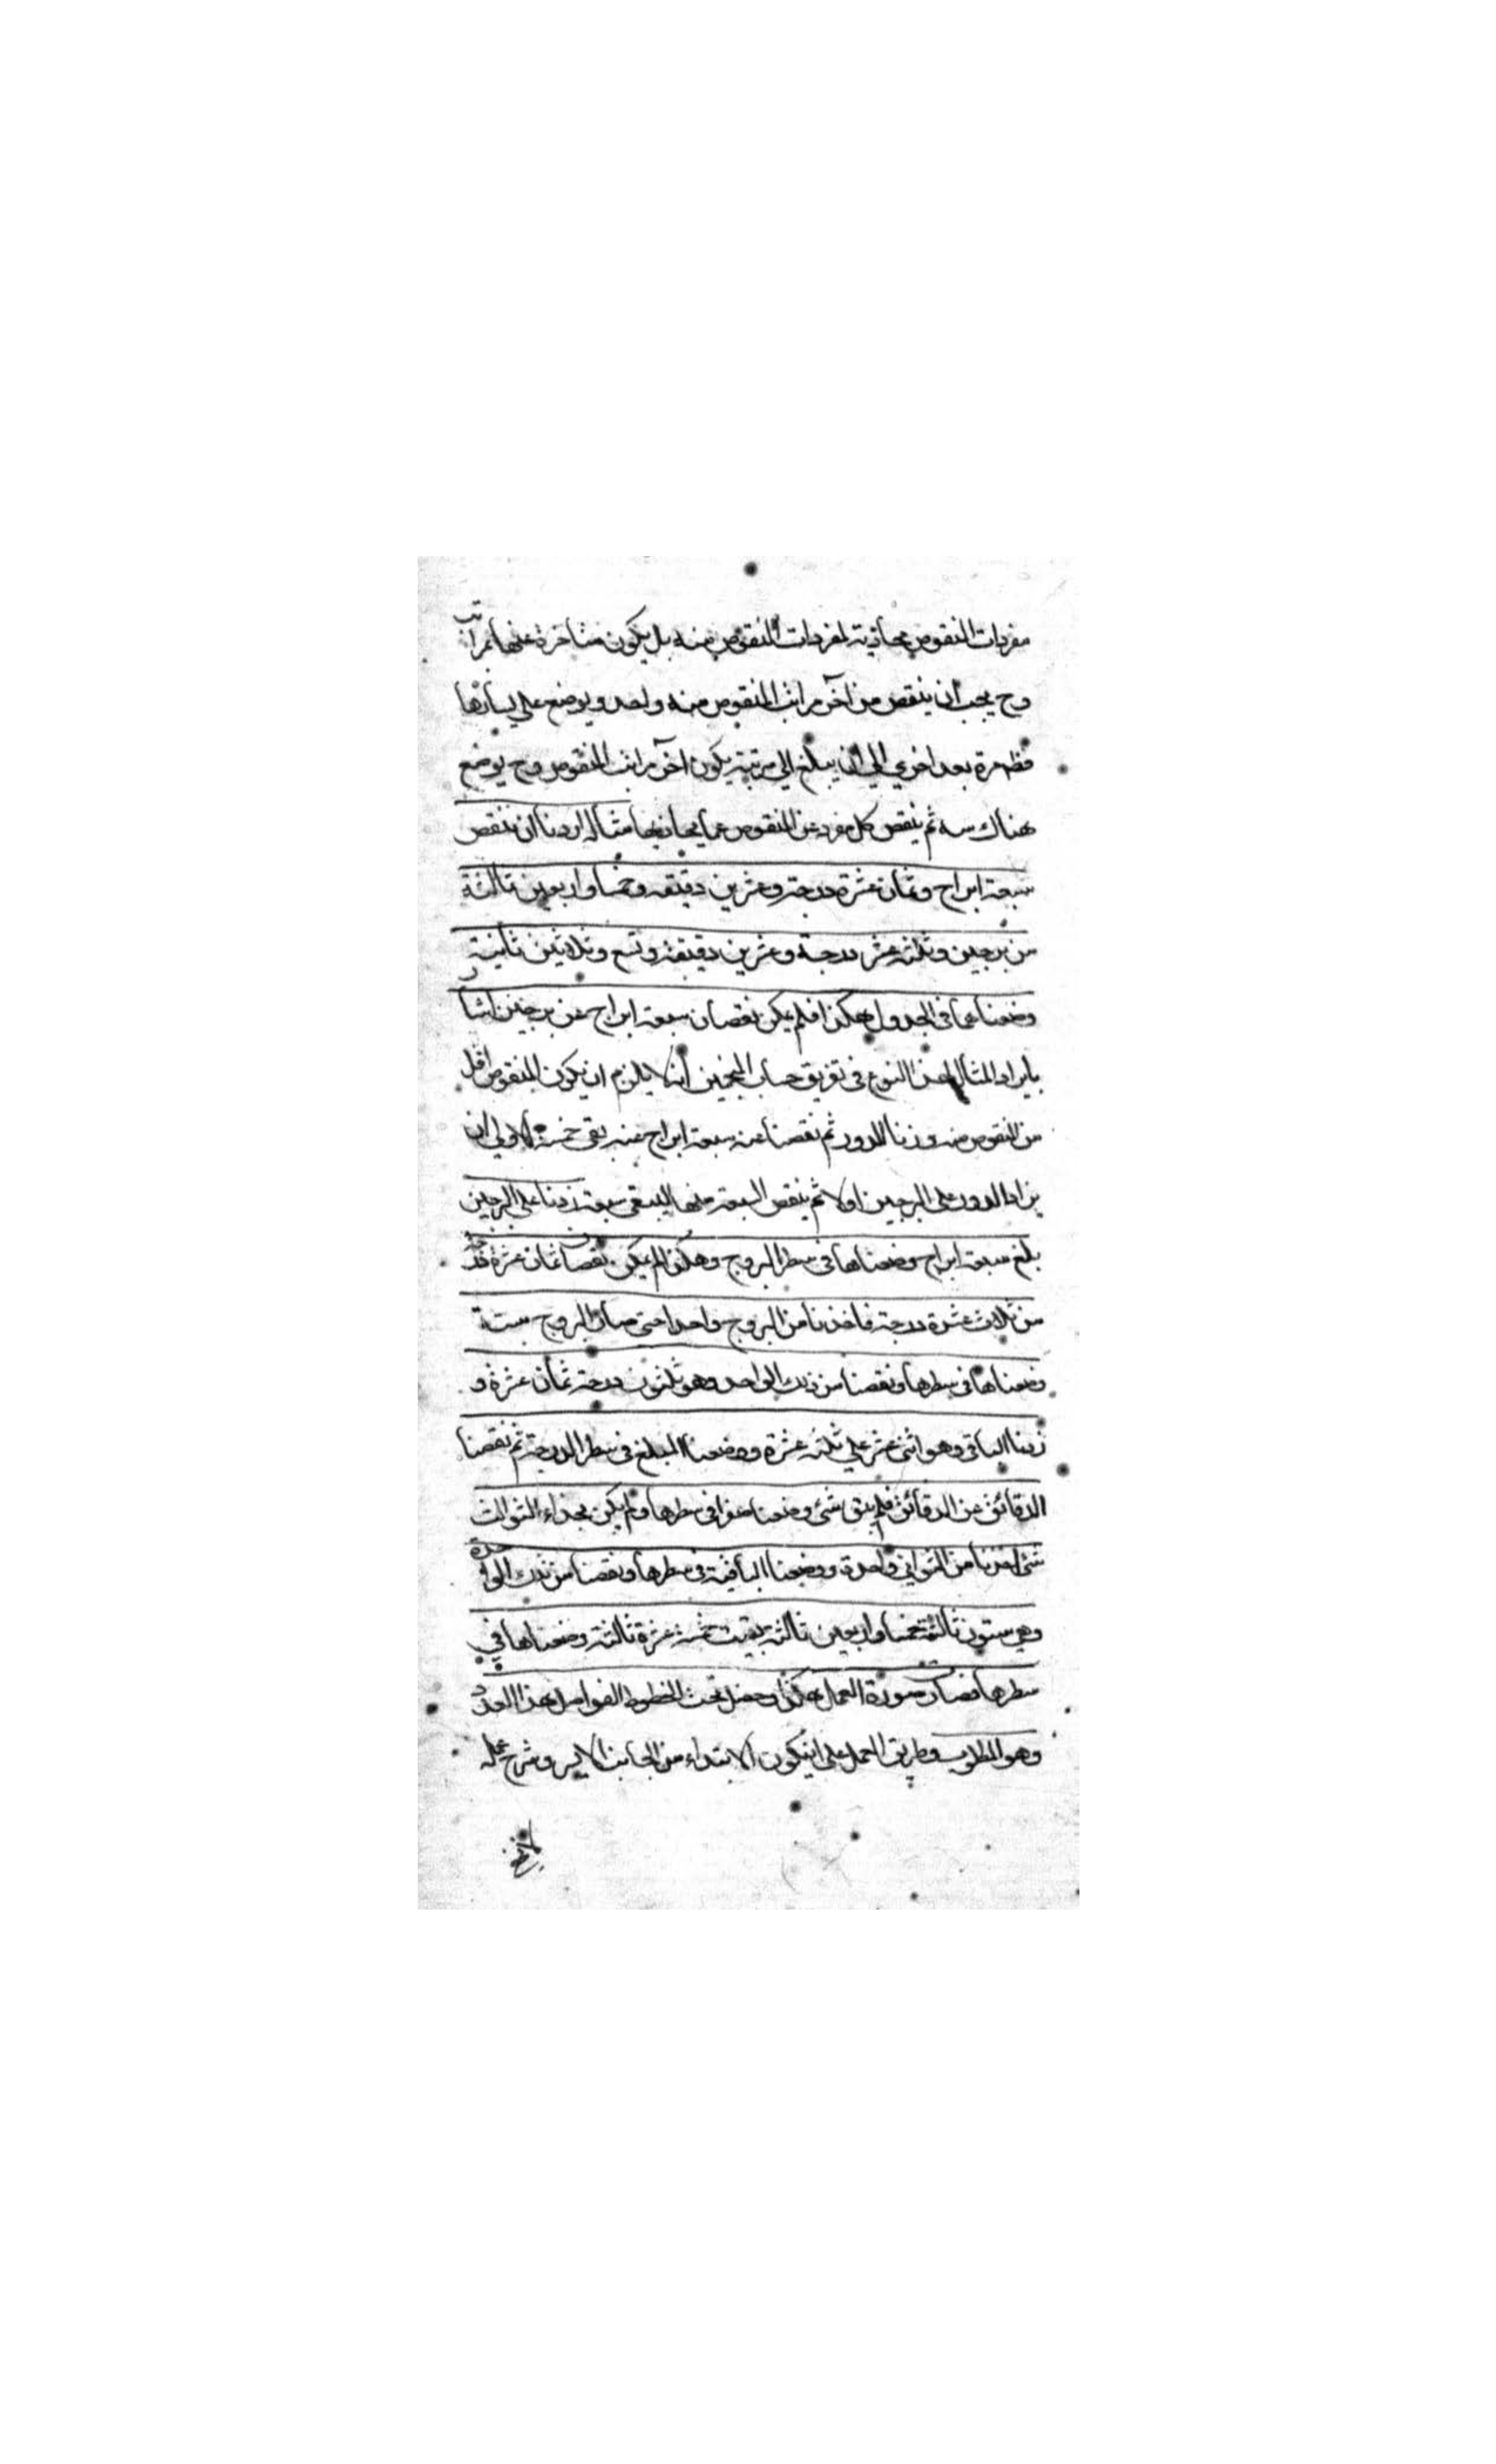 مفردات المنقوص محاذية لمفردات المنقوص منه بل يكون متأخرة عنها بمراتب
وح يجب ان ينقص من آخر مراتب المنقوص منه واحد ويوضع على يسارها
نط مرة بعد اخرى الى ان يبلغ الى مرتبة يكون آخر مراتب المنقوص وح يوضع
هناك سه ثم ينقص كل مفرد عن المنقوص عما يحاذيها مثاله اردنا ان ننقص
سبعة ابراج وثمان عشرة درجة وعشرين دقيقه وخمسا واربعين ثالثة
من برجين وثلثه عشر درجة وعشرين دقيقة وتسع وثلاثين ثانية
وضعناهما فى الجدول هكذا فلم يكن نقصان سبعة ابراج عن برجين اشار
بايراد المثال لهذا النوع فى تفريق حساب المنجمين انه لا يلزم ان يكون المنقوص اقل
من المنقوص منه وزنا الدور ثم نقصنا عنه سبعة ابراج عنه بقى خمسة الاولى ان
يزاد الدور على البرجين اولا ثم ينقص السبعة منها ليبقى سبعة زدنا على البرجين
بلغ سبعة ابراج وضعناها فى سطر البروج وهكذا لم يكن نقصان ثمان عشرة درجة
من ثلاث عشرة درجة فاخذنا من البروج واحدا حتى صار البروج ستة
وضعناها فى سطرها ونقصنا من ذلك الواحد وهو ثلثون درجة ثمان عشرة و
زدنا الباقى وهو اثنى عشر على ثلثه عشرة ووضعنا المبلغ فى سطر الدرجة ثم نقصنا
الدقائق عن الدقائق فلم يبق شئ وضعنا صفرا فى سطرها ولم يكن بحذاء الثوالث
شئ اخذنا من الثوانى واحدة ووضعنا الباقية فى سطرها ونقصنا من تلك الواحدة
وهى ستون ثالثة خمسا واربعين ثالثة بقيت خمسة عشرة ثالثة وضعناها فى
سطرها فصار صورة العمل هكذا وحصل تحت الخطوط الفواصل هذا العدد
وهو المطلوب وطريق العمل على ان يكون الابتداء من الجانب الايسر وشرح عمله